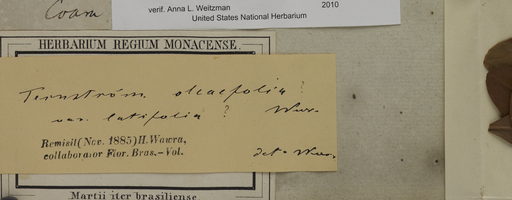 verif. Anna L. Weitzman 2010
United States National Herbarium
HERBARIUM REGIUM MONACENSE.
Ternström. oleaefolia !
var. latifolia ? Wwr.
Remisit (Nov. 1885) H. Wawra,
collaborator Flor. Bras.-Vol.
det. Wwr.
Martii iter brasiliense.